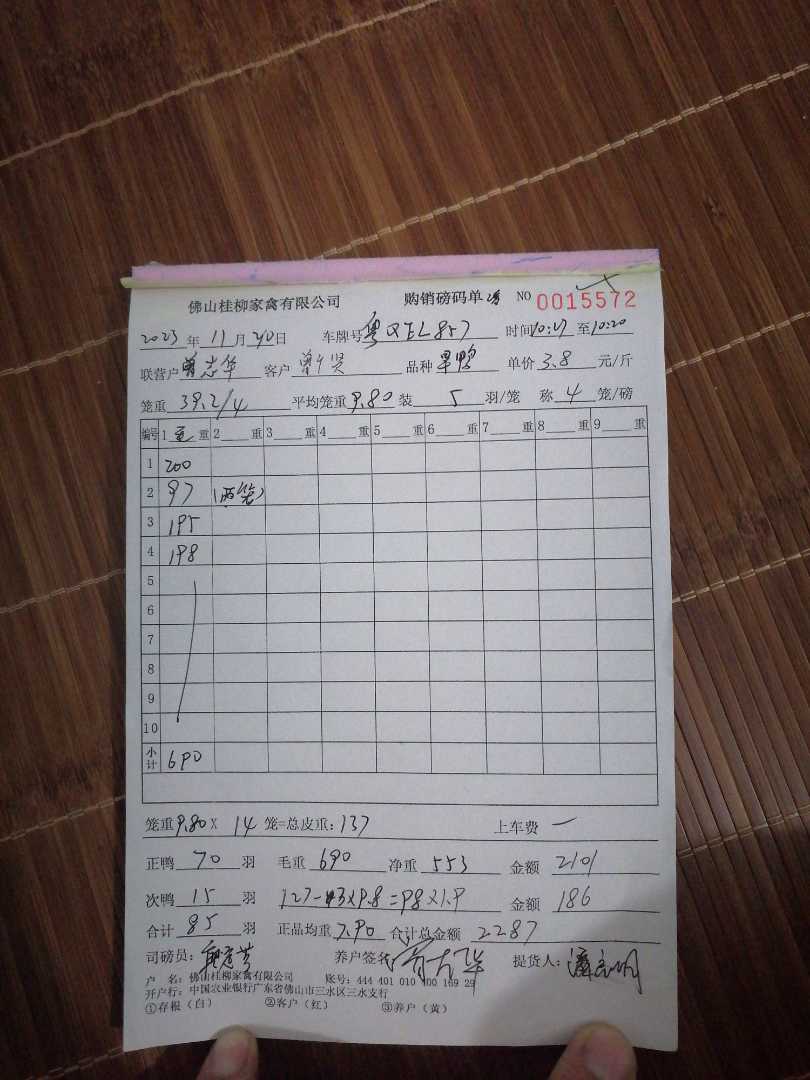 佛山桂柳家禽有限公司 购销磅码单 NO 0015572
2023 年 11 月 20 日 车牌号 粤 时间 10:17 至 10:20
联营户 曾志华 客户 品种 单价 3.8 元/斤
笼重 39.2/4 平均笼重 9.80 装 5 羽/笼 称 4 笼/磅
编号 1 重 2 重 3 重 4 重 5 重 6 重 7 重 8 重 9 重
1 200
2 97 (两笼)
3 195
4 198
5
6
7
8
9
10
小计 690
笼重 9.80 X 14 笼=总皮重: 137 上车费 一
正鸭 70 羽 毛重 690 净重 553 金额 2101
次鸭 15 羽 127-3×9.8=98×1.9 金额 186
合计 85 羽 正品均重 7.90 合计总金额 2287
司磅员: 养户签名 提货人:
户 名: 佛山桂柳家禽有限公司 账号: 444 401 010 400 169 29
开户行: 中国农业银行广东省佛山市三水区三水支行
①存根(白) ②客户(红) ③养户(黄)